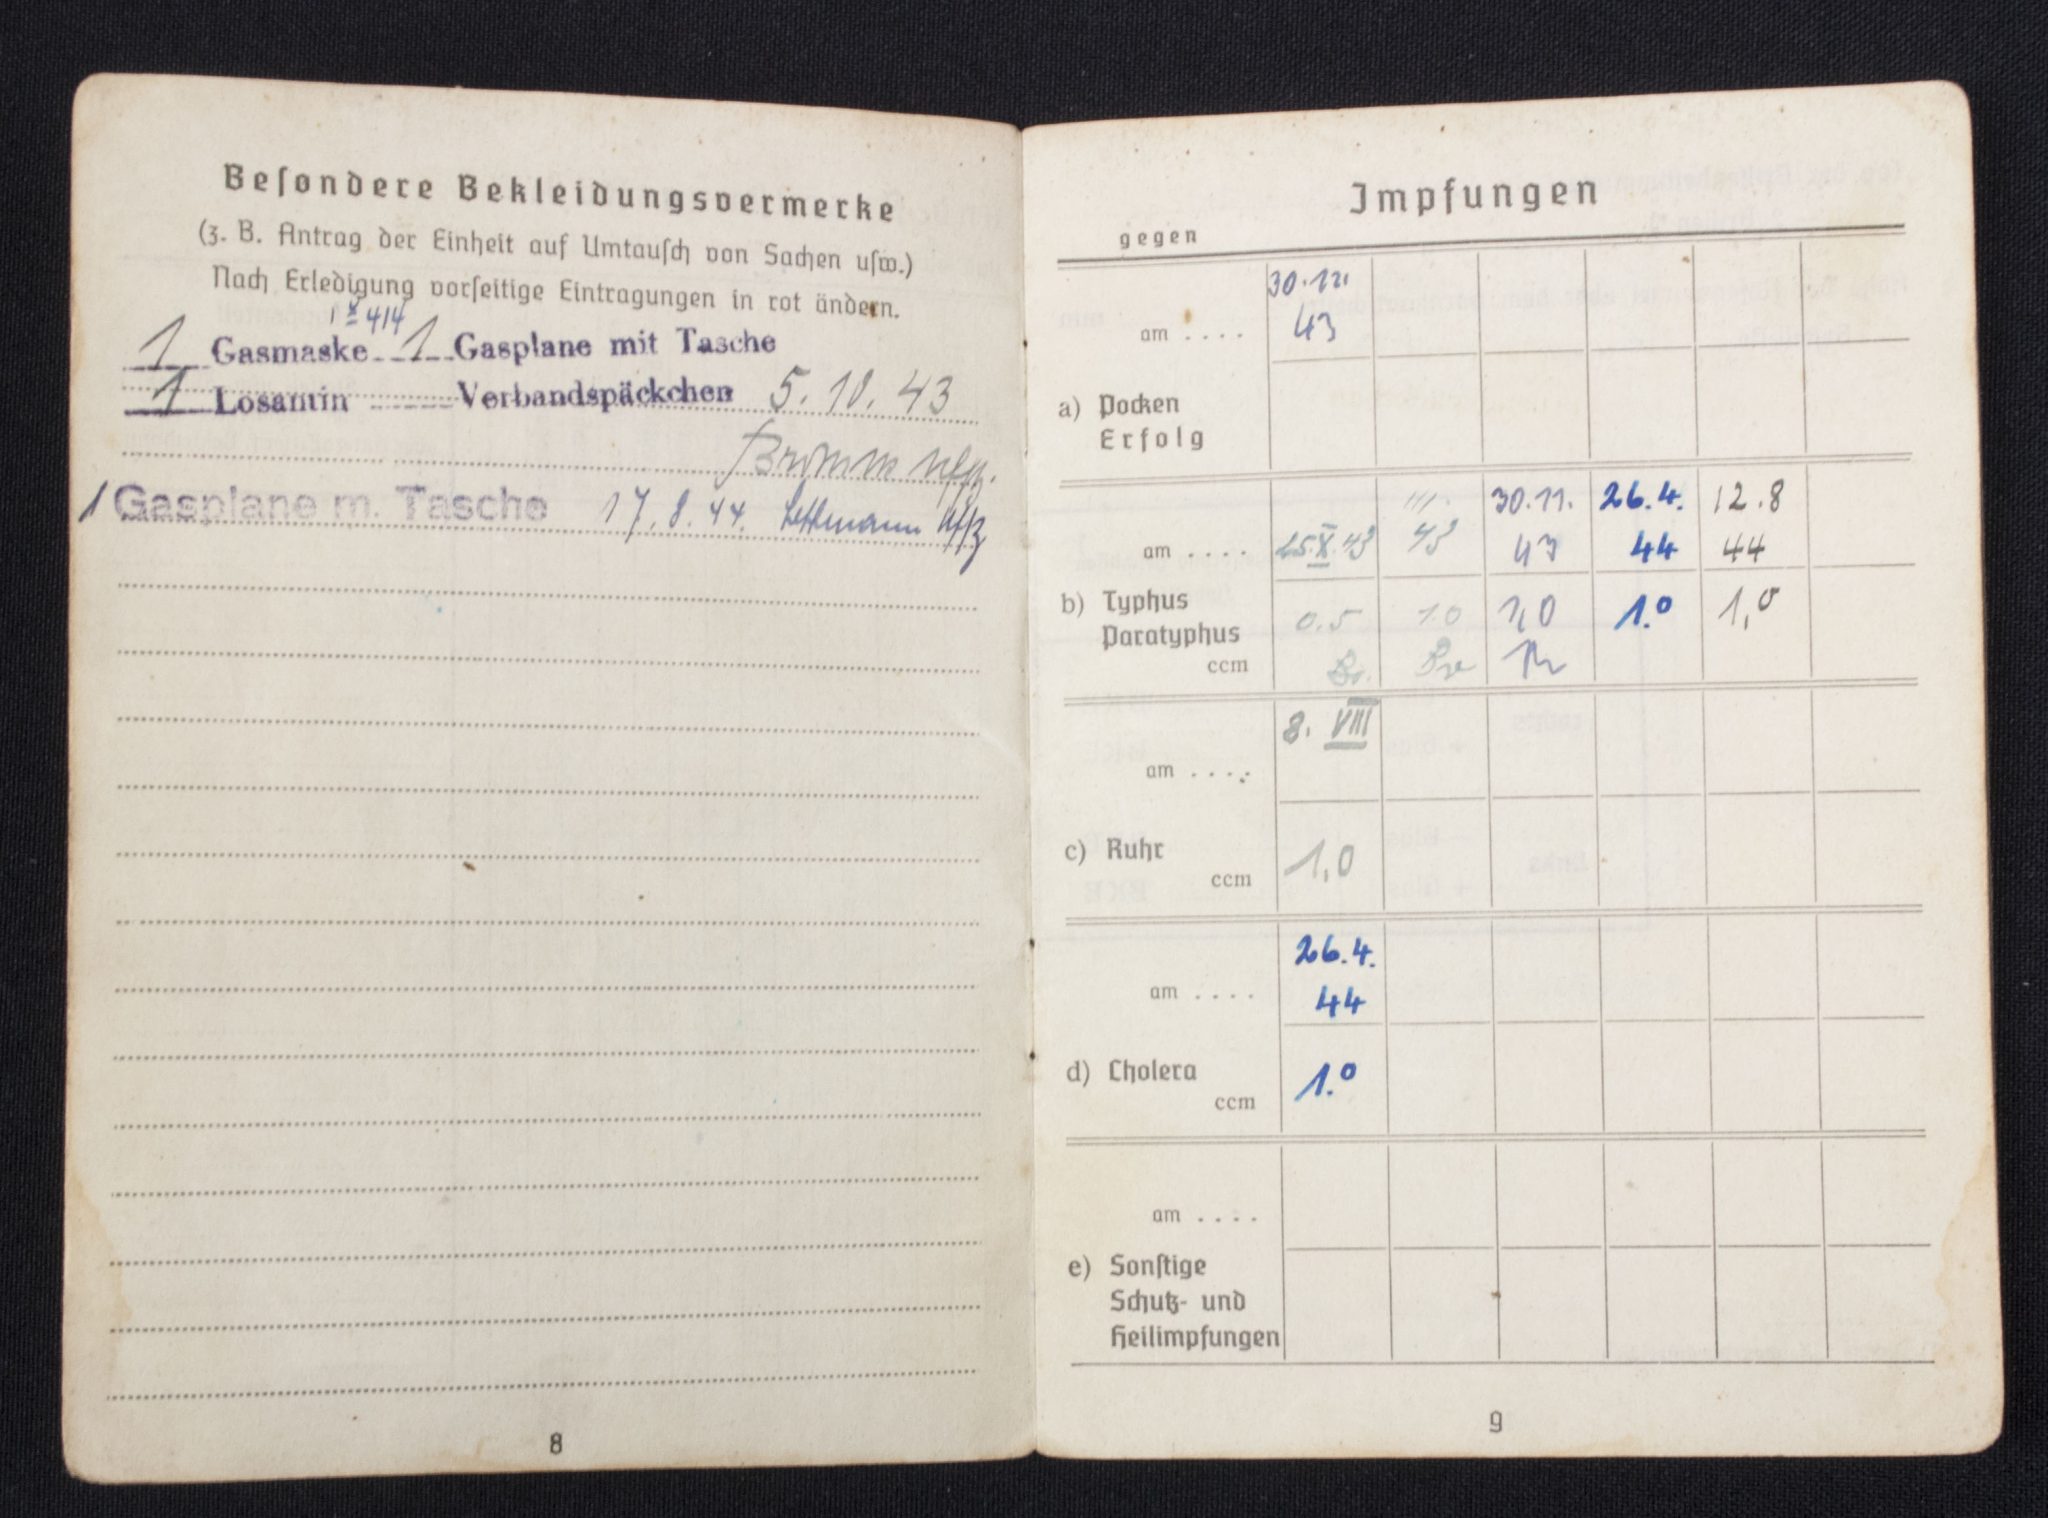 Besondere Bekleidungsvermerke
(z. B. Antrag der Einheit auf Umtausch von Sachen usw.)
Nach Erledigung vorseitige Eintragungen in rot ändern.
414
1 Gasmaske 1 Gasplane mit Tasche
1 Losantin Verbandspäckchen 5. 10. 43
1 Gasplane m. Tasche 17. 8. 44. Uffz
8
Impfungen
gegen
am . . . . 30. 43
a) Pocken
Erfolg
am . . . . 25.X.43 43 30.11. 43 26.4. 44 12.8 44
b) Typhus
Paratyphus
ccm
0.5 1.0 1,0 1.0 1,0
am . . . . 8. VIII
c) Ruhr
ccm 1,0
am . . . . 26.4. 44
d) Cholera
ccm 1.0
am . . . .
e) Sonstige
Schutz- und
Heilimpfungen
9